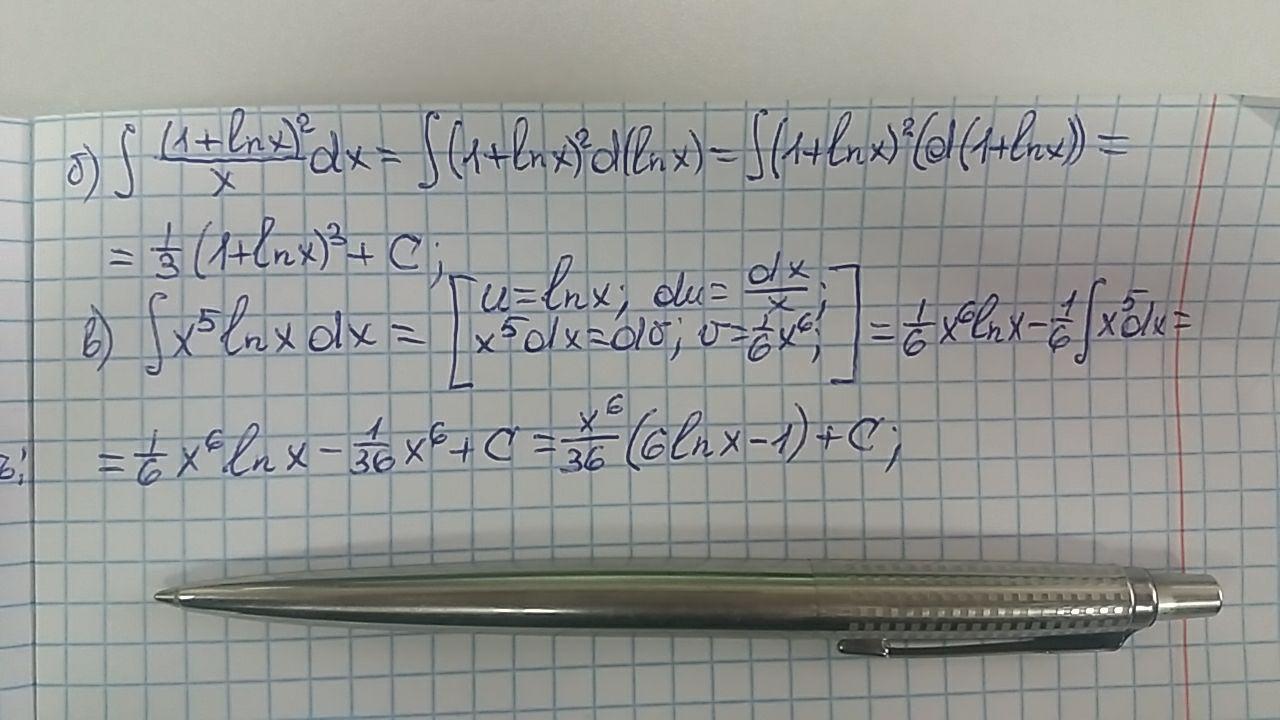 б) ∫ (1+ln x)²/x dx = ∫(1+ln x)² d(ln x) = ∫(1+ln x)² (d(1+ln x)) =
= 1/3 (1+ln x)³ + C;
в) ∫ x⁵ ln x dx = [u = ln x; du = dx/x; x⁵dx = dv; v = 1/6 x⁶;] = 1/6 x⁶ ln x − 1/6 ∫ x⁵ dx =
= 1/6 x⁶ ln x − 1/36 x⁶ + C = x⁶/36 (6 ln x − 1) + C;